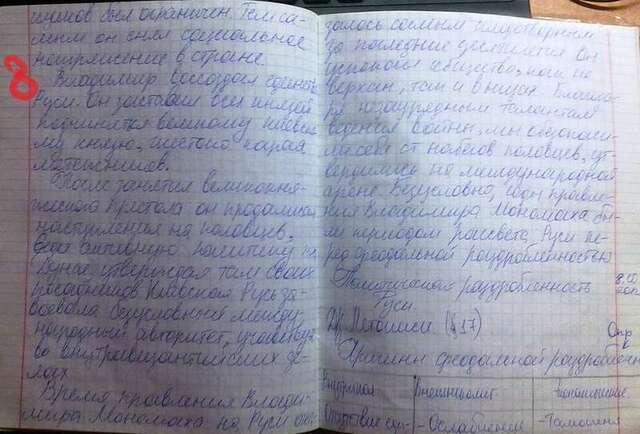 щиков был ограничен. Тем са-
мым он снял социальное
напряжение в стране.
Владимир воссоздал единств
Руси. Он заставил всех князей
подчинятся великому киевск
му князю, жестоко карая
мятежников.
После занятия великокня-
жеского престола он продолжил
наступления на половцев,
активную политику
утверждая там своих
посадников. Киевская Русь за-
воевала безусловный между-
народный авторитет, участвуя
во внутривизантийских де-
лах.
Время правления Влади-
мира Мономаха на Руси ока-
залось самым плодотворным
за последние десятилетия. Он
успокоил общество, как на
верхах, так и в низах. Благода
ря незаурядным талантам
ведения войны, мы обезопаси-
ли себя от набегов половцев, ут-
вердились на международной
арене. Безусловно, годы правле-
ния Владимира Мономаха бы-
ли периодом расцвета Руси пе-
ред феодальной раздробленностью
Политическая раздробленность
Руси
Др. Летописи. (§17)
Причины феодальной раздроблен
Внутренние
Отсутствие
- Ослабление
- Таможня